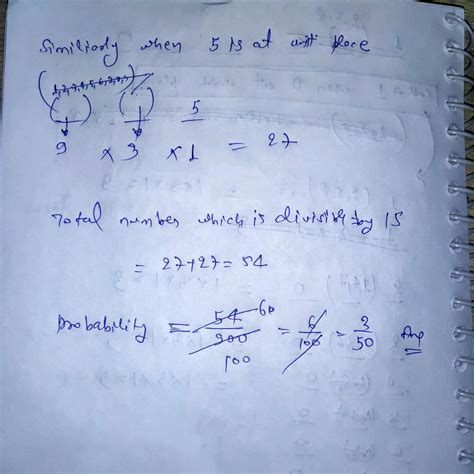 Similiarly when 5 is at unit place
(1,2,3,4,5,6,7,8,9)
( ) ( ) 5
9 × 3 × 1 = 27
Total number which is divisible by 15
= 27+27 = 54
Probability = 54/900 60/100 = 6/100 = 3/50 Ans